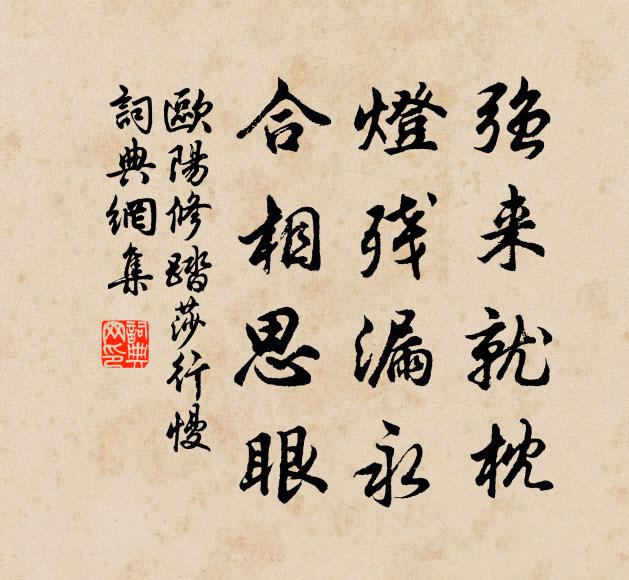 强来就枕
燈残漏永
合相思眼
歐陽修踏莎行慢
詞典網集
詞典
网印